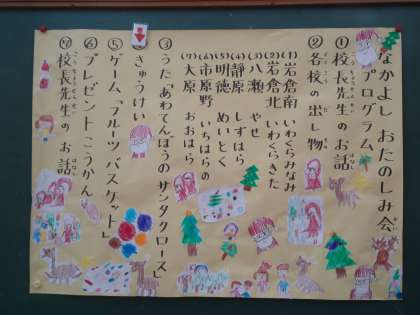 なかよし おたのしみ会
プログラム
①校長先生のお話
②各校の出し物
(1)岩倉南 いわくらみなみ
(2)岩倉北 いわくらきた
(3)八瀬 やせ
(4)静原 しずはら
(5)明徳 めいとく
(6)市原野 いちはらの
(7)大原 おおはら
③うた「あわてんぼうのサンタクロース」
④きゅうけい
⑤ゲーム「フルーツバスケット」
⑥プレゼントこうかん
⑦校長先生のお話